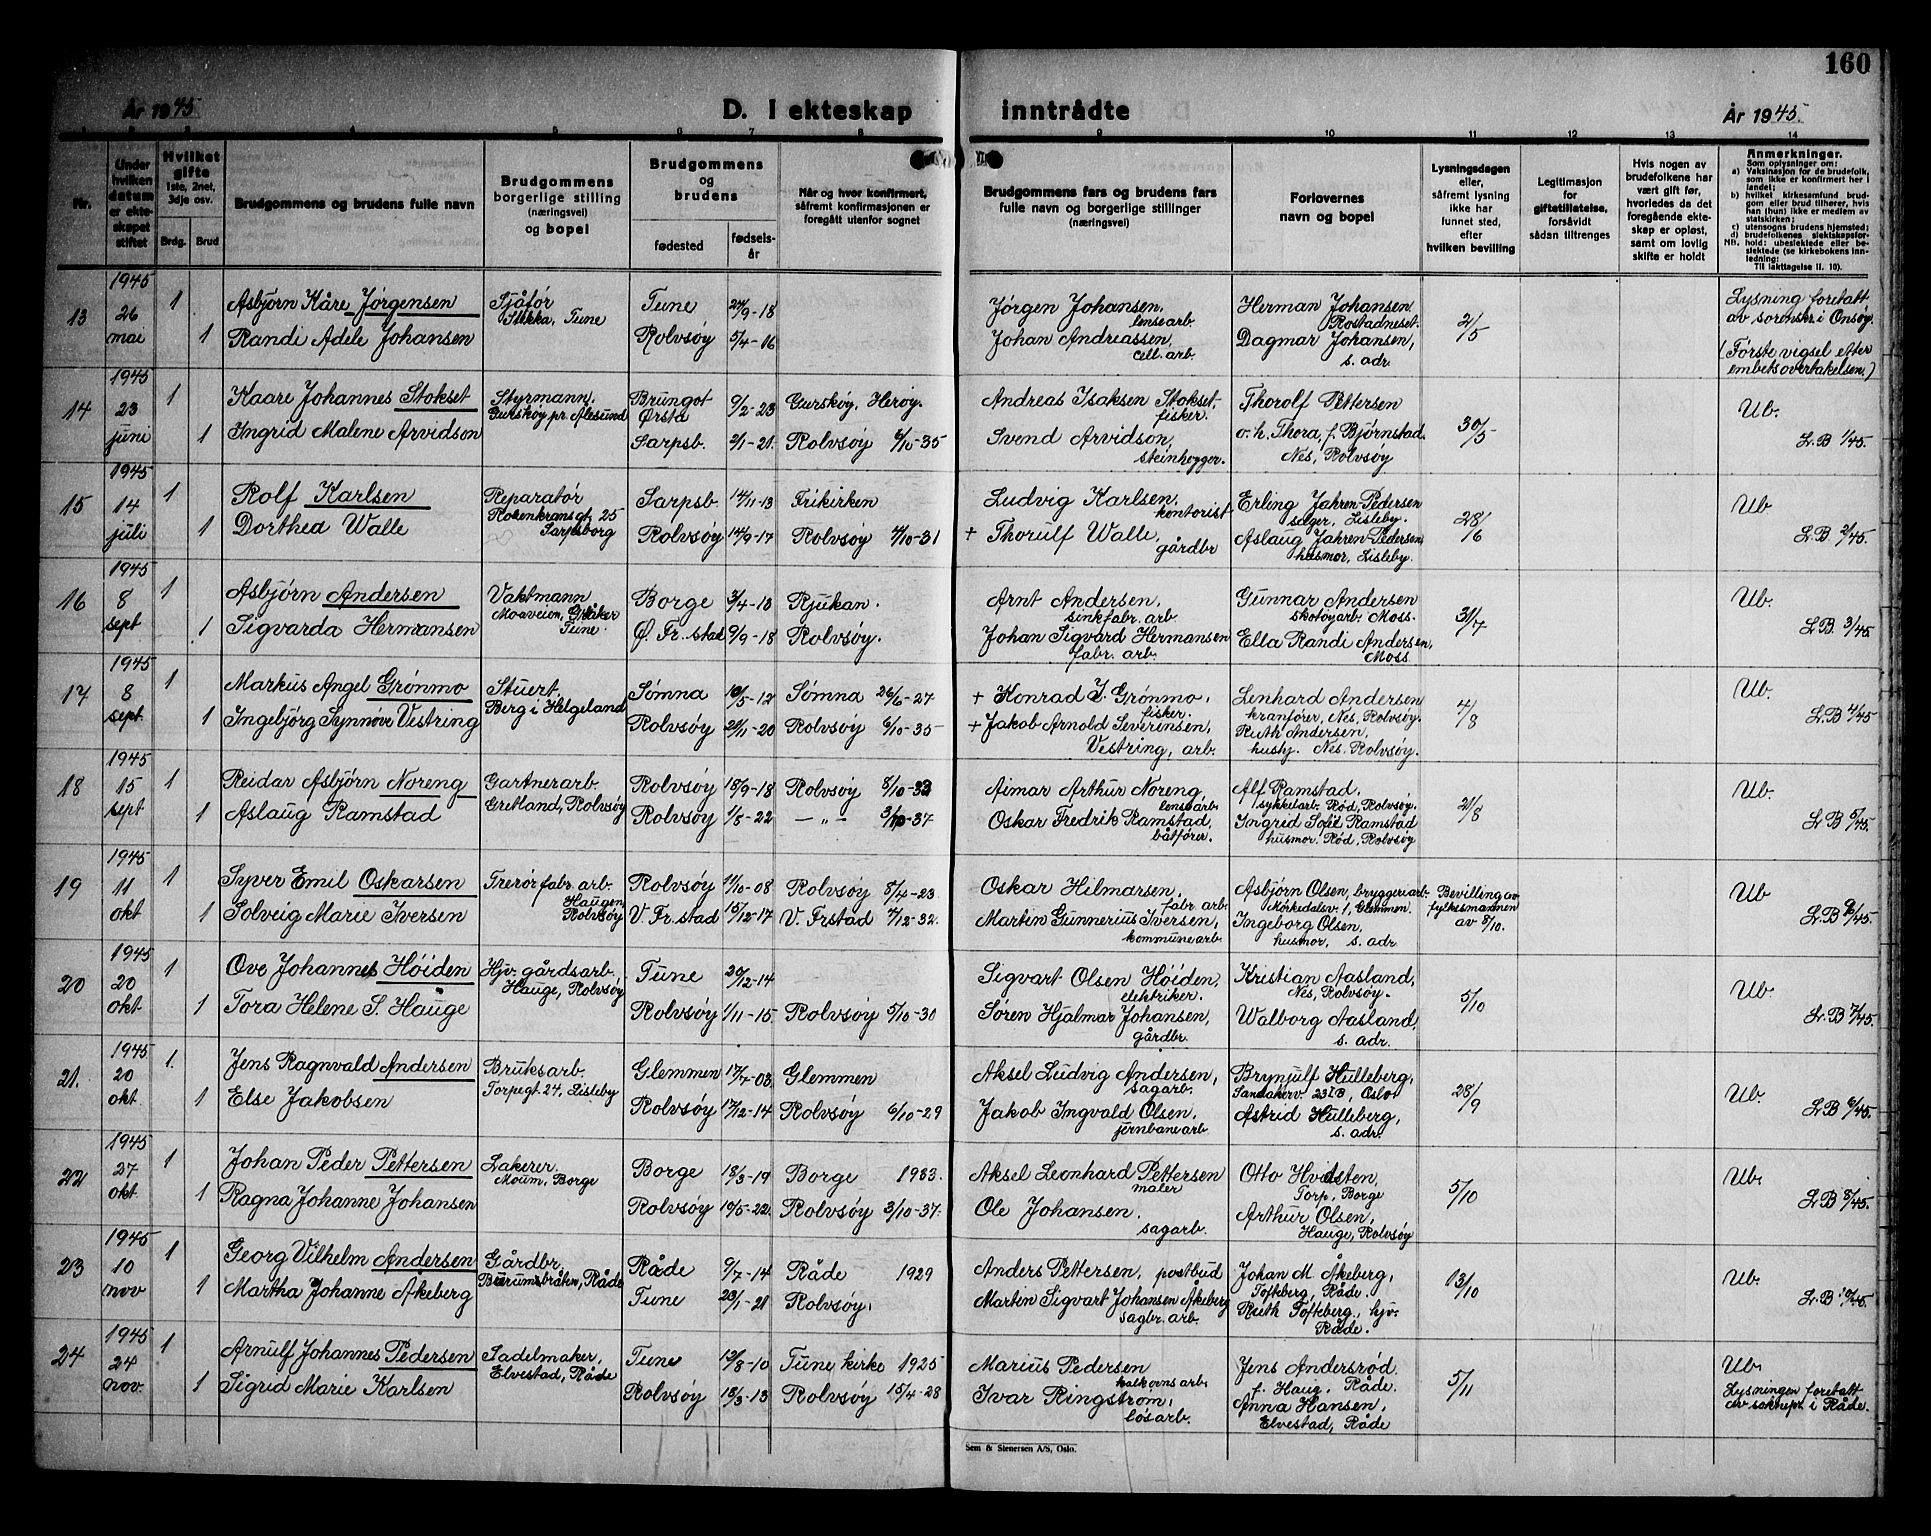 160
År 1945
D. I ekteskap inntrådte
År 1945
1 2 3 4 5 6 7 8 9 10 11 12 13 14
Nr.
Under hvilken datum er ekteskapet stiftet
Hvilket gifte
1ste, 2net, 3dje osv.
Brdg. Brud
Brudgommens og brudens fulle navn
Brudgommens borgerlige stilling (næringsvei) og bopel
Brudgommens og brudens
fødested
fødselsår
Når og hvor konfirmert, såfremt konfirmasjonen er foregått utenfor sognet
Brudgommens fars og brudens fars fulle navn og borgerlige stillinger (næringsvei)
Forlovernes navn og bopel
Lysningsdagen eller, såfremt lysning ikke har funnet sted, efter hvilken bevilling
Legitimasjon for giftetillatelse, forsåvidt sådan tiltrenges
Hvis nogen av brudefolkene har vært gift før, hvorledes da det foregående ekteskap er opløst, samt om lovlig skifte er holdt
Anmerkninger.
Som oplysninger om:
a) Vaksinasjon for de brudefolk, som ikke er konfirmert her i landet;
b) hvilket kirkesamfund brudgom eller brud tilhører, hvis han (hun) ikke er medlem av statskirken;
c) utensogns brudens hjemsted;
d) brudefolkenes slektskapsforhold: ubeslektede eller beslektede (se kirkebokens innledning:
NB.
Til iakttagelse II. 10).
13 1945 26 mai 1 Asbjörn Kåre Jørgensen Sjåfør Tune 24/9-18 Jørgen Johansen, lensearb. Herman Johansen Rostadneset. 2/5 Lysning foretatt av sorenskr. i Onsøy.
Stikka, Tune
1 Randi Adele Johansen Rolvsöy 5/4-16 Johan Andreassen, cell. arb. Dagmar Johansen, s. adr. (Første vigsel efter embetsovertakelsen.)
14 1945 23 juni 1 Kaare Johannes Stokset Styrmann. Brungot Ørsta 9/2-23 Gurskøy, Herøy. Andreas Isaksen Stokset, fisker. Thorolf Pettersen 30/5 Ub.
Gurskøy pr. Ålesund
1 Ingrid Malene Arvidson Sarpsb. 2/1-21. Rolvsöy 6/10-35 Svend Arvidson, steinhogger. o. h. Thora, f. Bjørnstad. Nes, Rolvsöy L.B 1/45.
15 1945 14 juli 1 Rolf Karlsen Reparatör Sarpsb. 14/11-13 Frikirken Ludvig Karlsen, kontorist Erling Jahren-Pedersen sager, Lisleby. 28/6 Ub
Rosenkransgt. 25 Sarpsborg
1 Dorthea Walle Rolvsöy 14/9-17 Rolvsöy 4/10-31 + Thorulf Walle, gårdbr Aslaug Jahren-Pedersen, husmor, Lisleby. L.B 2/45.
16 1945 8 sept 1 Asbjörn Andersen Vaktmann Borge 3/4-13 Rjukan. Arnt Andersen, sinkfabr. arb Gunnar Andersen skotøyarb. Moss. 31/7 Ub.
Moaveien, Greåker Tune.
1 Sigvarda Hermansen Ø. Fr. stad 9/9-18 Rolvsöy. Johan Sigvard Hermansen fabr. arb. Ella Randi Andersen, Moss. L.B. 3/45
17 1945 8 sept. 1 Markus Angel Grönmo Stuert. Sømna 10/5-12 Sømna 26/6-27 + Konrad J. Grønmo, fisker. Lenhard Andersen kranfører, Nes, Rolvsöy. 4/8 Ub.
Berg i Helgeland
1 Ingebjørg Synnøve Vestring Rolvsöy 21/11-20 Rolvsöy 6/10-35 + Jakob Arnold Severinsen, Vestring, arb. Ruth Andersen, hushj. Nes, Rolvsöy. L.B 4/45
18 1945 15 sept 1 Reidar Asbjörn Noreng Gartnerarb. Rolvsöy 18/9-18 Rolvsöy 8/10-33 Aimar Arthur Noreng, lensearb. Alf Ramstad, sykkelarb. Röd, Rolvsöy. 21/8 Ub.
Gretland, Rolvsöy
1 Aslaug Ramstad Rolvsöy 1/8-22 —„— 3/10-37 Oskar Fredrik Ramstad, båtfører. Ingrid Sofie Ramstad husmor. Röd, Rolvsöy L.B 5/45.
19 1945 11 okt 1 Syver Emil Oskarsen Trerör fabr. arb. Rolvsöy 11/10-08 Rolvsöy 8/4-23 Oskar Hilmarsen, fabr arb. Asbjörn Olsen, bryggeriarb. Mørkedalsv. 1, Glemmen. Bevilling av fylkesmannen av 8/10. Ub
Haugen, Rolvsöy
1 Solveig Marie Iversen V. Fr. stad 15/12-17 V. Frstad 4/12-32. Martin Gunnerius Iversen, kommunearb. Ingeborg Olsen, husmor, s. adr L.B 9/45.
20 1945 20 okt 1 Ove Johannes Höiden Hjv. gårdsarb. Tune 20/12-14 Sigvart Olsen Höiden, elektriker. Kristian Aasland, Nes, Rolvsöy. 5/10 Ub.
Hauge, Rolvsöy
1 Tora Helene S. Hauge Rolvsöy 1/11-15 Rolvsöy 5/10-30 Søren Hjalmar Johansen, gårdbr. Walborg Aasland, s. adr. L.B 7/45.
21. 1945 20 okt. 1. Jens Ragnvald Andersen Bruksarb. Glemmen 17/7-03 Glemmen Aksel Ludvig Andersen, sagarb. Brynjulf Hulleberg, Sandakerv. 23 I B, Oslo 28/9 Ub.
Torpegt. 24, Lisleby
1 Else Jakobsen Rolvsöy 17/12-14 Rolvsöy 6/10-29 Jakob Ingvald Olsen. jernbanearb. Astrid Hulleberg, s. adr. L.B 6/45.
22 1945 27 okt. 1 Johan Peder Pettersen Lakerer. Borge 18/3-19 Borge 1933. Aksel Leonhard Pettersen maler Otto Hvidsten, Torp, Borge 5/10 Ub.
Moum, Borge
1 Ragna Johanne Johansen Rolvsöy 10/5-22. Rolvsöy 3/10-37. Ole Johansen. sagarb. Arthur Olsen, Hauge, Rolvsöy L.B 8/45.
23 1945 10 nov 1 Georg Vilhelm Andersen Gårdbr. Råde 9/7-14 Råde 1929 Anders Pettersen, postbud Johan M. Åkeberg, Tofteberg, Råde. 13/10 Ub.
Bærumsbråten, Råde
1 Martha Johanne Åkeberg Tune 23/1-21 Rolvsöy, Martin Sigvart Johansen Åkeberg sagbr. arb. Ruth Tofteberg, hjv. Råde. L.B 10/45.
24 1945 24 nov. 1 Arnulf Johannes Pedersen Sadelmaker, Tune 13/8-10 Tune kirke 1925 Marius Pedersen kalkovnsarb. Jens Andersrød f. Haug. Råde. 5/11 Ub.
Elvestad, Råde
1 Sigrid Marie Karlsen Rolvsöy 18/3-13 Rolvsöy 15/4-28 Ivar Ringstrøm, løsarb. Anna Hansen, Elvestad, Råde Lysningen foretatt av soknepr. i Råde.
Sem & Stenersen A/S, Oslo.